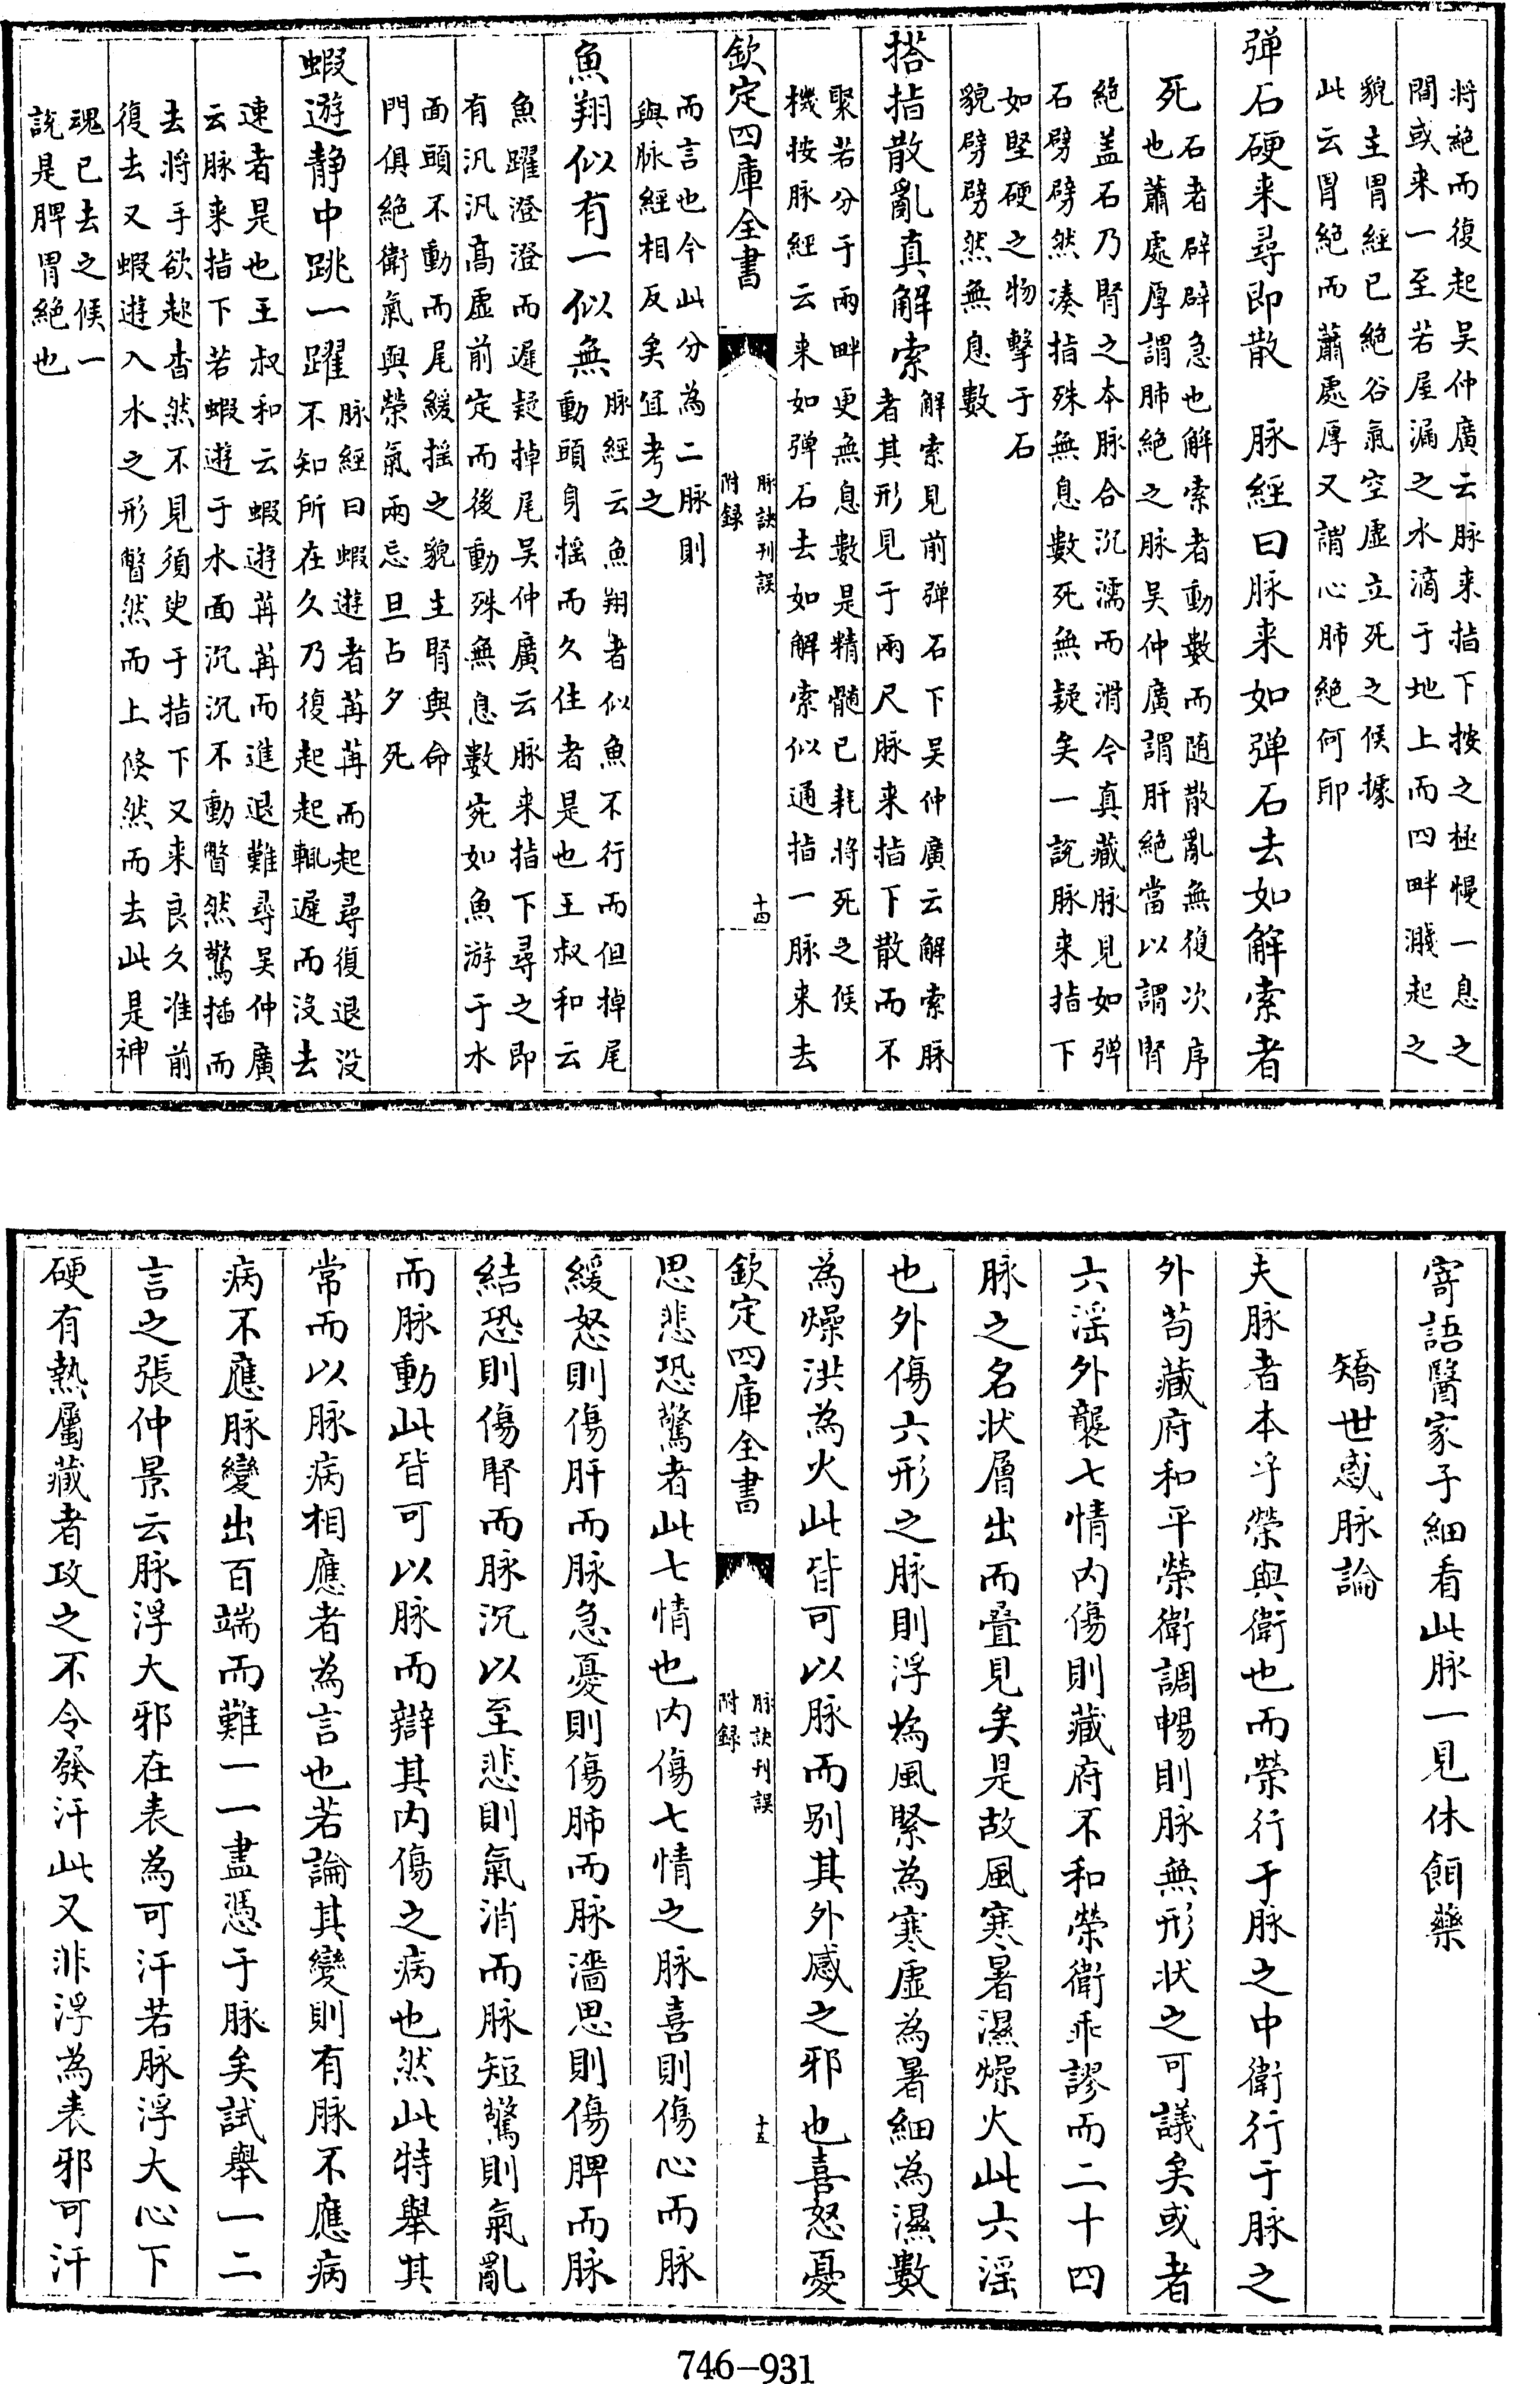 將絕而復起吳仲廣云脉来指下按之極慢一息之
間或来一至若屋漏之水滴于地上而四畔濺起之
貌主胃經已絕谷氣空虚立死之候據
此云胃絕而蕭處厚又謂心肺絕何耶
弹石硬来尋即散　脉經曰脉来如弹石去如解索者
死
石者辟辟急也解索者動數而随散亂無復次序
也蕭處厚謂肺絕之脉吳仲廣謂肝絕當以謂腎
絕盖石乃腎之本脉合沉濡而滑今真藏脉見如弹
石劈劈然凑指殊無息數死無疑矣一說脉来指下
如堅硬之物擊于石
貌劈劈然無息數
搭指散亂真解索
解索見前弹石下吳仲廣云解索脉
者其形見于兩尺脉来指下散而不
聚若分于兩畔更無息數是精髓已耗將死之候
機按脉經云来如弹石去如解索似通指一脉来去
欽定四庫全書
脉訣刊誤
附録
十四
而言也今此分為二脉則
與脉經相反矣宜考之
魚翔似有一似無
脉經云魚翔者似魚不行而但掉尾
動頭身揺而久住者是也王叔和云
魚躍澄澄而遲疑掉尾吳仲廣云脉来指下尋之即
有汎汎高虚前定而後動殊無息數宛如魚游于水
面頭不動而尾緩揺之貌主腎與命
門俱絕衛氣與榮氣兩忘旦占夕死
蝦遊静中跳一躍
脉經曰蝦遊者苒苒而起尋復退没
不知所在久乃復起起輒遲而没去
速者是也王叔和云蝦遊苒苒而進退難尋吳仲廣
云脉来指下若蝦遊于水面沉沉不動瞥然驚插而
去將手欲趁杳然不見須臾于指下又来良久准前
復去又蝦遊入水之形瞥然而上倐然而去此是神
魂已去之候一
說是脾胃絕也
寄語醫家子細看此脉一見休餌藥
矯世惑脉論
夫脉者本乎榮與衛也而榮行于脉之中衛行于脉之
外苟藏府和平榮衛調暢則脉無形狀之可議矣或者
六淫外襲七情内傷則藏府不和榮衛乖謬而二十四
脉之名状層出而疊見矣是故風寒暑濕燥火此六淫
也外傷六形之脉則浮為風緊為寒虚為暑細為濕數
為燥洪為火此皆可以脉而别其外感之邪也喜怒憂
欽定四庫全書
脉訣刊誤
附録
十五
思悲恐驚者此七情也内傷七情之脉喜則傷心而脉
緩怒則傷肝而脉急憂則傷肺而脉濇思則傷脾而脉
結恐則傷腎而脉沉以至悲則氣消而脉短驚則氣亂
而脉動此皆可以脉而辯其内傷之病也然此特舉其
常而以脉病相應者為言也若論其變則有脉不應病
病不應脉變出百端而難一一盡憑于脉矣試舉一二
言之張仲景云脉浮大邪在表為可汗若脉浮大心下
硬有熱屬藏者攻之不令發汗此又非浮為表邪可汗
746-931